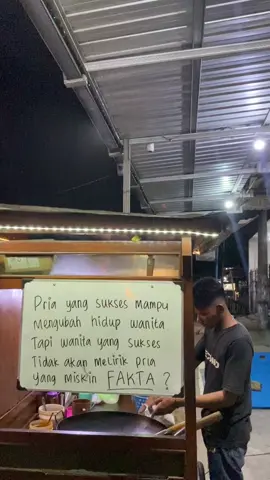 Pria yang sukses mampu
mengubah hidup wanita
Tapi wanita yang sukses
Tidak akan melirik pria
yang miskin FAKTA ?